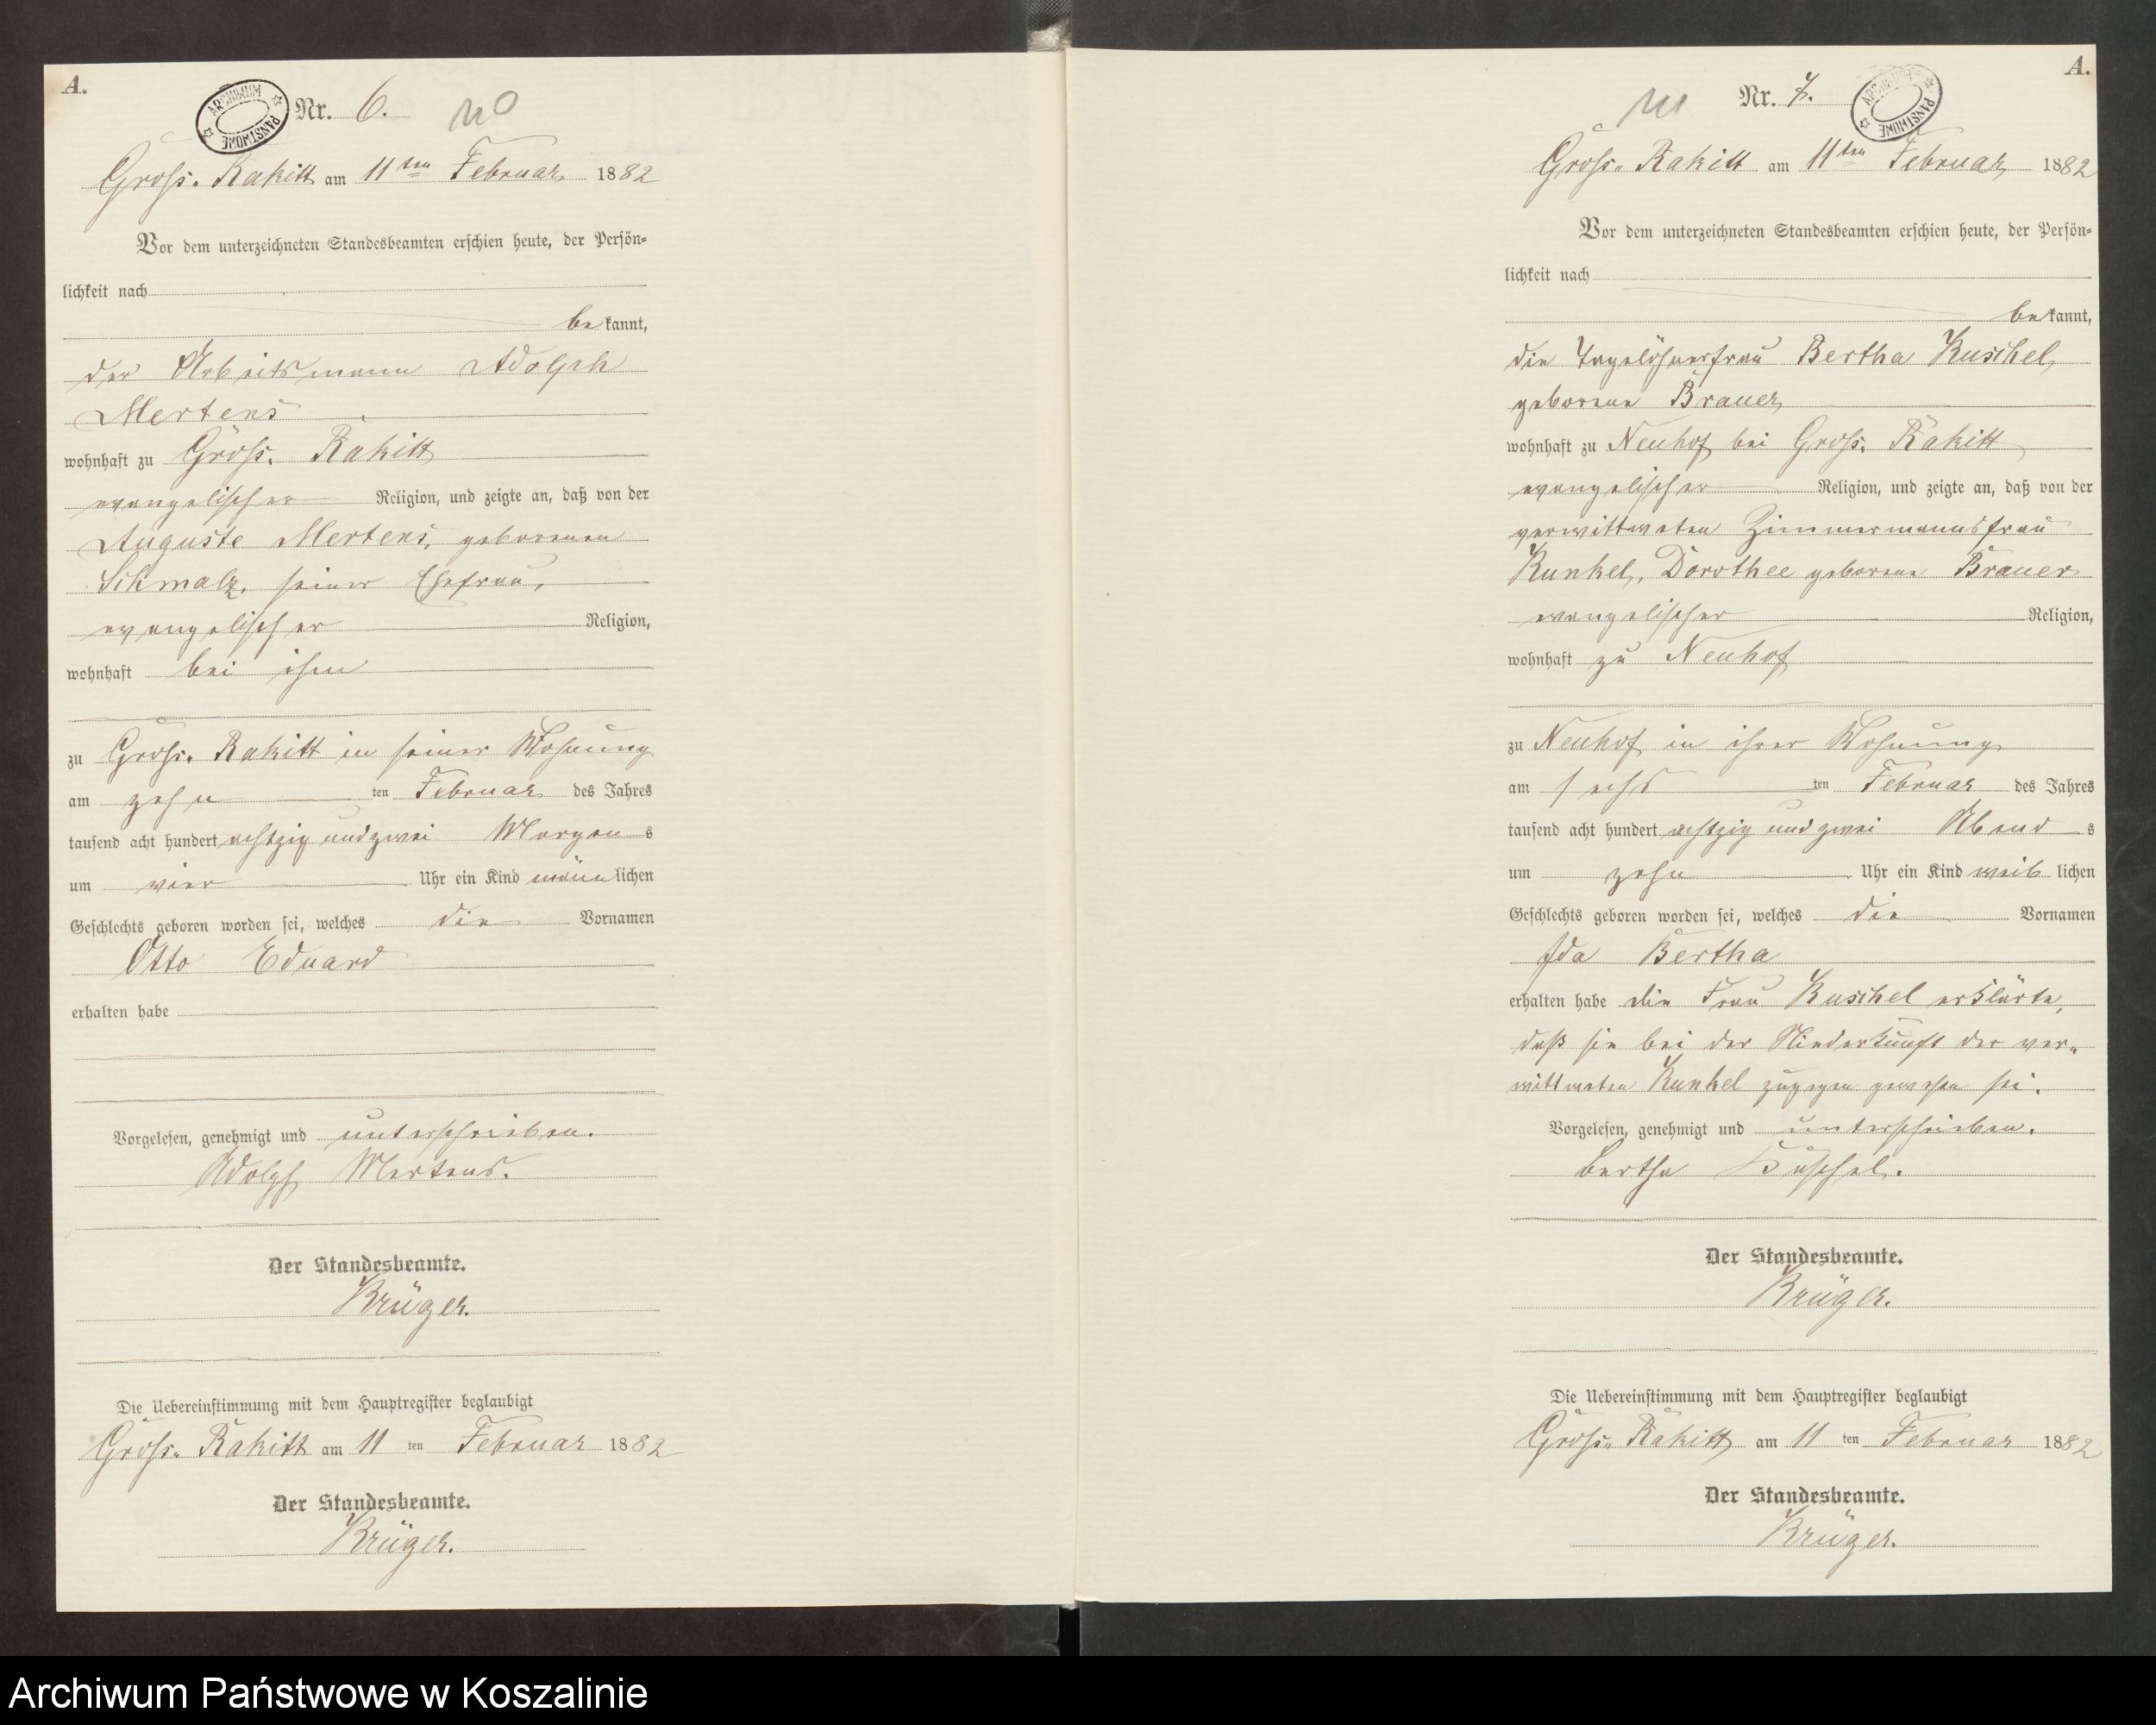 A.
ARCHIWUM PAŃSTWOWE
Nr. 6.
Groß. Rakitt am 11ten Februar 1882
Vor dem unterzeichneten Standesbeamten erschien heute, der Persön-
lichkeit nach
bekannt,
der Arbeitsmann Adolph
Mertens
wohnhaft zu Groß. Rakitt
evangelischer Religion, und zeigte an, daß von der
Auguste Mertens, geborenen
Schmalz, seiner Ehefrau,
evangelischer Religion,
wohnhaft bei ihm
zu Groß. Rakitt in seiner Wohnung
am zehn ten Februar des Jahres
tausend acht hundert achtzig und zwei Morgens
um vier Uhr ein Kind männlichen
Geschlechts geboren worden sei, welches die Vornamen
Otto Eduard
erhalten habe
Vorgelesen, genehmigt und unterschrieben.
Adolph Mertens.
Der Standesbeamte.
Krüger.
Die Uebereinstimmung mit dem Hauptregister beglaubigt
Groß. Rakitt am 11 ten Februar 1882
Der Standesbeamte.
Krüger.
A.
Nr. 7.
ARCHIWUM PAŃSTWOWE
Groß. Rakitt am 11ten Februar 1882
Vor dem unterzeichneten Standesbeamten erschien heute, der Persön-
lichkeit nach
bekannt,
die Tagelöhnerfrau Bertha Kuschel,
geborene Brauer,
wohnhaft zu Neuhof bei Groß. Rakitt
evangelischer Religion, und zeigte an, daß von der
verwittweten Zimmermannsfrau
Kunkel, Dorothee geborene Brauer
evangelischer Religion,
wohnhaft zu Neuhof
zu Neuhof in ihrer Wohnung
am sechs ten Februar des Jahres
tausend acht hundert achtzig und zwei Abends
um zehn Uhr ein Kind weiblichen
Geschlechts geboren worden sei, welches die Vornamen
Ida Bertha
erhalten habe die Frau Kuschel erklärte,
daß sie bei der Niederkunft der ver-
wittweten Kunkel zugegen gewesen sei.
Vorgelesen, genehmigt und unterschrieben.
Bertha Kuschel.
Der Standesbeamte.
Krüger.
Die Uebereinstimmung mit dem Hauptregister beglaubigt
Groß. Rakitt am 11 ten Februar 1882
Der Standesbeamte.
Krüger.
Archiwum Państwowe w Koszalinie